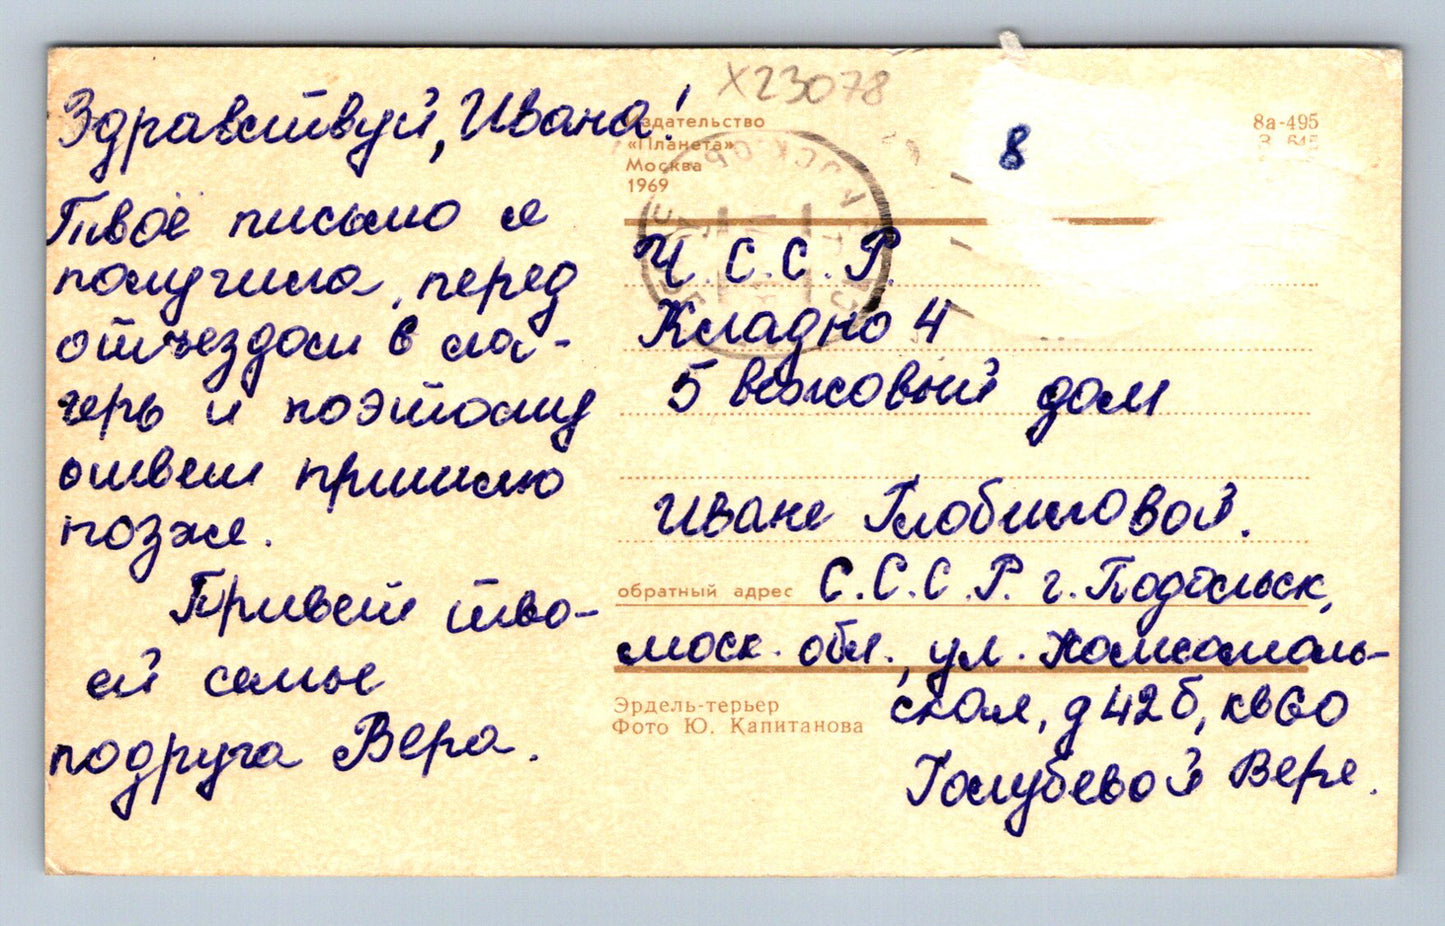 Х23078
Здравствуй, Ивана!
Твоё письмо я
получила, перед
отъездом в ла-
герь и поэтому
ответ пришлю
позже.
Привет тво-
ей семье
подруга Вера.
Издательство
«Планета»
Москва
1969
8
8а-495
З. 645
Ч.С.С.Р.
Кладно 4
5 вежовый дом
Иване Глобиловой.
обратный адрес С.С.С.Р. г. Подольск,
моск. обл., ул. Комсомоль-
ская, д 42б, кв 60
Голубевой Вере.
Эрдель-терьер
Фото Ю. Капитанова